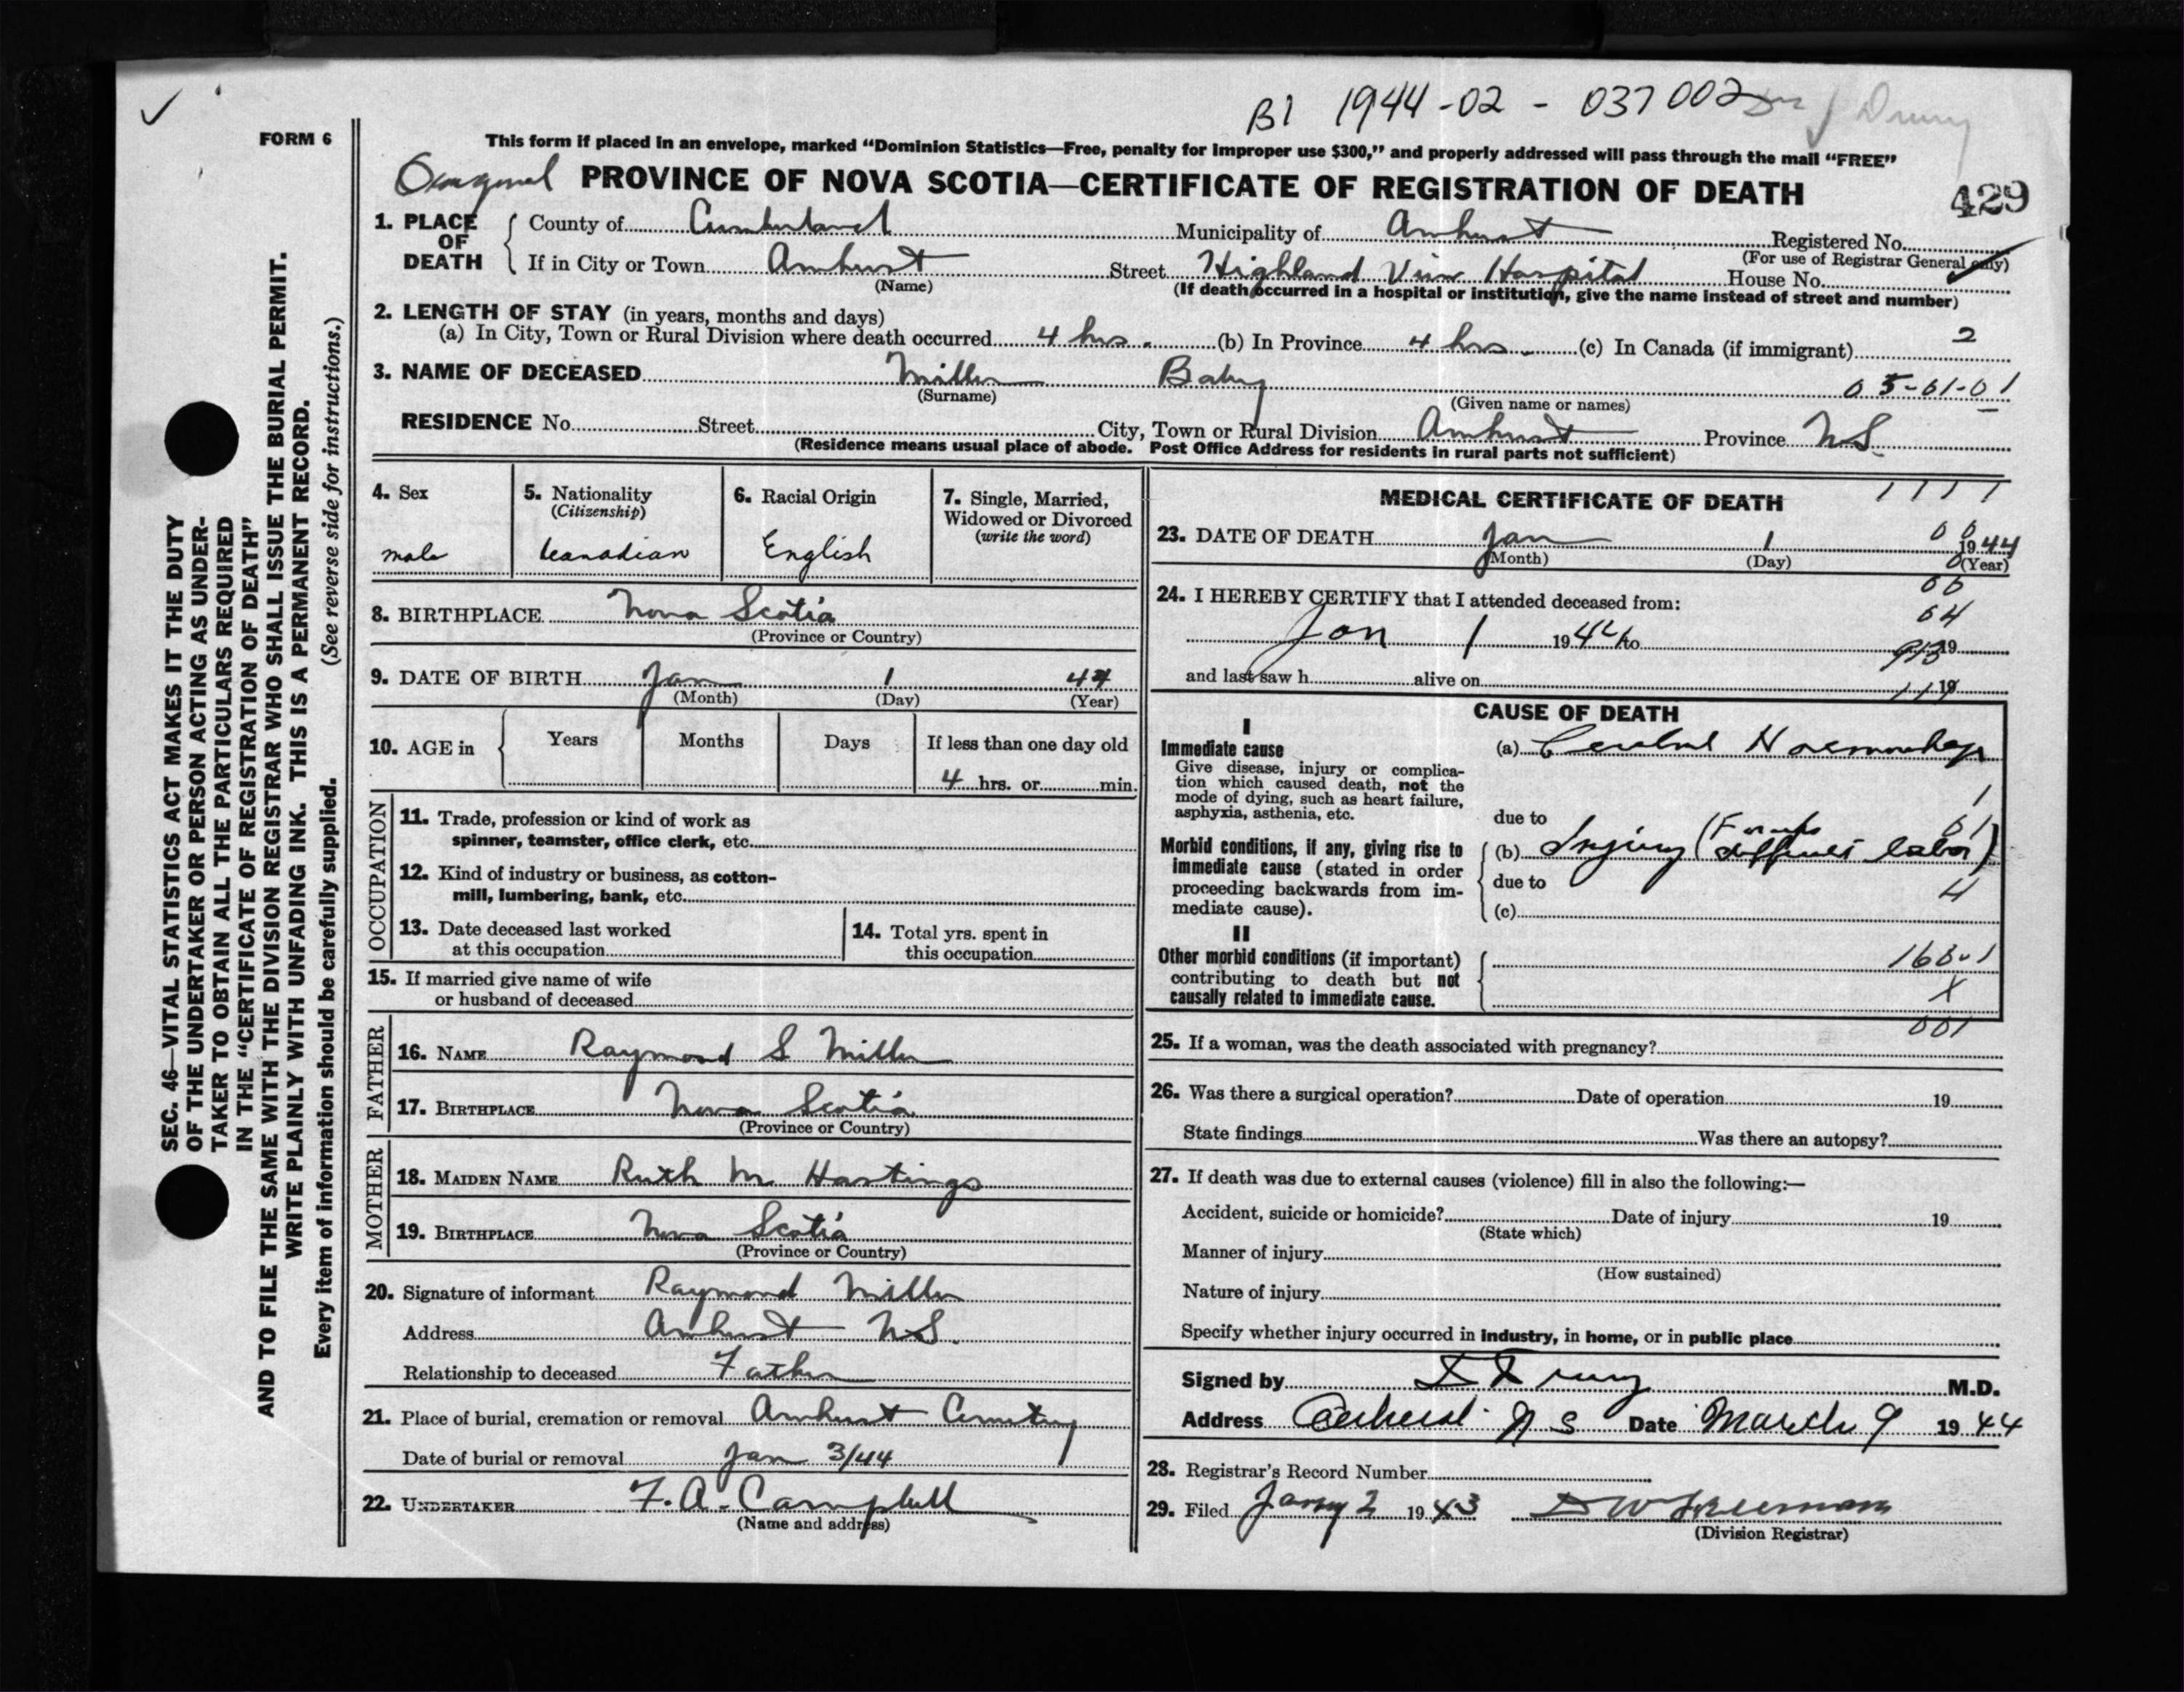 B1 1944-02-037002 Dr J Drury
FORM 6
This form if placed in an envelope, marked "Dominion Statistics—Free, penalty for improper use $300," and properly addressed will pass through the mail "FREE"
PROVINCE OF NOVA SCOTIA—CERTIFICATE OF REGISTRATION OF DEATH
429
1. PLACE OF DEATH
County of Cumberland Municipality of Amherst Registered No.
(For use of Registrar General only)
If in City or Town Amherst Street Highland View Hospital House No.
(Name) (If death occurred in a hospital or institution, give the name instead of street and number)
2. LENGTH OF STAY (in years, months and days)
(a) In City, Town or Rural Division where death occurred 4 hrs. (b) In Province 4 hrs. (c) In Canada (if immigrant) 2
3. NAME OF DECEASED Miller Baby 05-01-01
(Surname) (Given name or names)
RESIDENCE No. Street City, Town or Rural Division Amherst Province N.S.
(Residence means usual place of abode. Post Office Address for residents in rural parts not sufficient)
4. Sex
male
5. Nationality
(Citizenship)
Canadian
6. Racial Origin
English
7. Single, Married,
Widowed or Divorced
(write the word)
8. BIRTHPLACE Nova Scotia
(Province or Country)
9. DATE OF BIRTH Jan 1 44
(Month) (Day) (Year)
10. AGE in Years Months Days If less than one day old
4 hrs. or min.
OCCUPATION
11. Trade, profession or kind of work as
spinner, teamster, office clerk, etc.
12. Kind of industry or business, as cotton-
mill, lumbering, bank, etc.
13. Date deceased last worked
at this occupation
14. Total yrs. spent in
this occupation
15. If married give name of wife
or husband of deceased
FATHER
16. NAME Raymond S Miller
17. BIRTHPLACE Nova Scotia
(Province or Country)
MOTHER
18. MAIDEN NAME Ruth M Hastings
19. BIRTHPLACE Nova Scotia
(Province or Country)
20. Signature of informant Raymond Miller
Address Amherst N.S.
Relationship to deceased Father
21. Place of burial, cremation or removal Amherst Cemetery
Date of burial or removal Jan 3/44
22. UNDERTAKER F. A. Campbell
(Name and address)
MEDICAL CERTIFICATE OF DEATH 1 1 1 1
23. DATE OF DEATH Jan 1 1944
(Month) (Day) (Year)
24. I HEREBY CERTIFY that I attended deceased from:
Jan 1 1944 to 19
and last saw h alive on 19
CAUSE OF DEATH
I
Immediate cause
Give disease, injury or complica-
tion which caused death, not the
mode of dying, such as heart failure,
asphyxia, asthenia, etc.
(a) Cerebral Haemorrhage
due to
Morbid conditions, if any, giving rise to
immediate cause (stated in order
proceeding backwards from im-
mediate cause).
(b) Injury (Forceps
difficult labor)
due to
4
(c)
II
Other morbid conditions (if important)
contributing to death but not
causally related to immediate cause.
X
001
25. If a woman, was the death associated with pregnancy?
26. Was there a surgical operation? Date of operation 19
State findings Was there an autopsy?
27. If death was due to external causes (violence) fill in also the following:—
Accident, suicide or homicide? Date of injury 19
(State which)
Manner of injury
(How sustained)
Nature of injury
Specify whether injury occurred in industry, in home, or in public place
Signed by D Drury M.D.
Address Amherst N S Date March 9 1944
28. Registrar's Record Number
29. Filed Jany 2 1943 D W Freeman
(Division Registrar)
SEC. 46—VITAL STATISTICS ACT MAKES IT THE DUTY
OF THE UNDERTAKER OR PERSON ACTING AS UNDER-
TAKER TO OBTAIN ALL THE PARTICULARS REQUIRED
IN THE "CERTIFICATE OF REGISTRATION OF DEATH"
AND TO FILE THE SAME WITH THE DIVISION REGISTRAR WHO SHALL ISSUE THE BURIAL PERMIT.
WRITE PLAINLY WITH UNFADING INK. THIS IS A PERMANENT RECORD.
Every item of information should be carefully supplied. (See reverse side for instructions.)